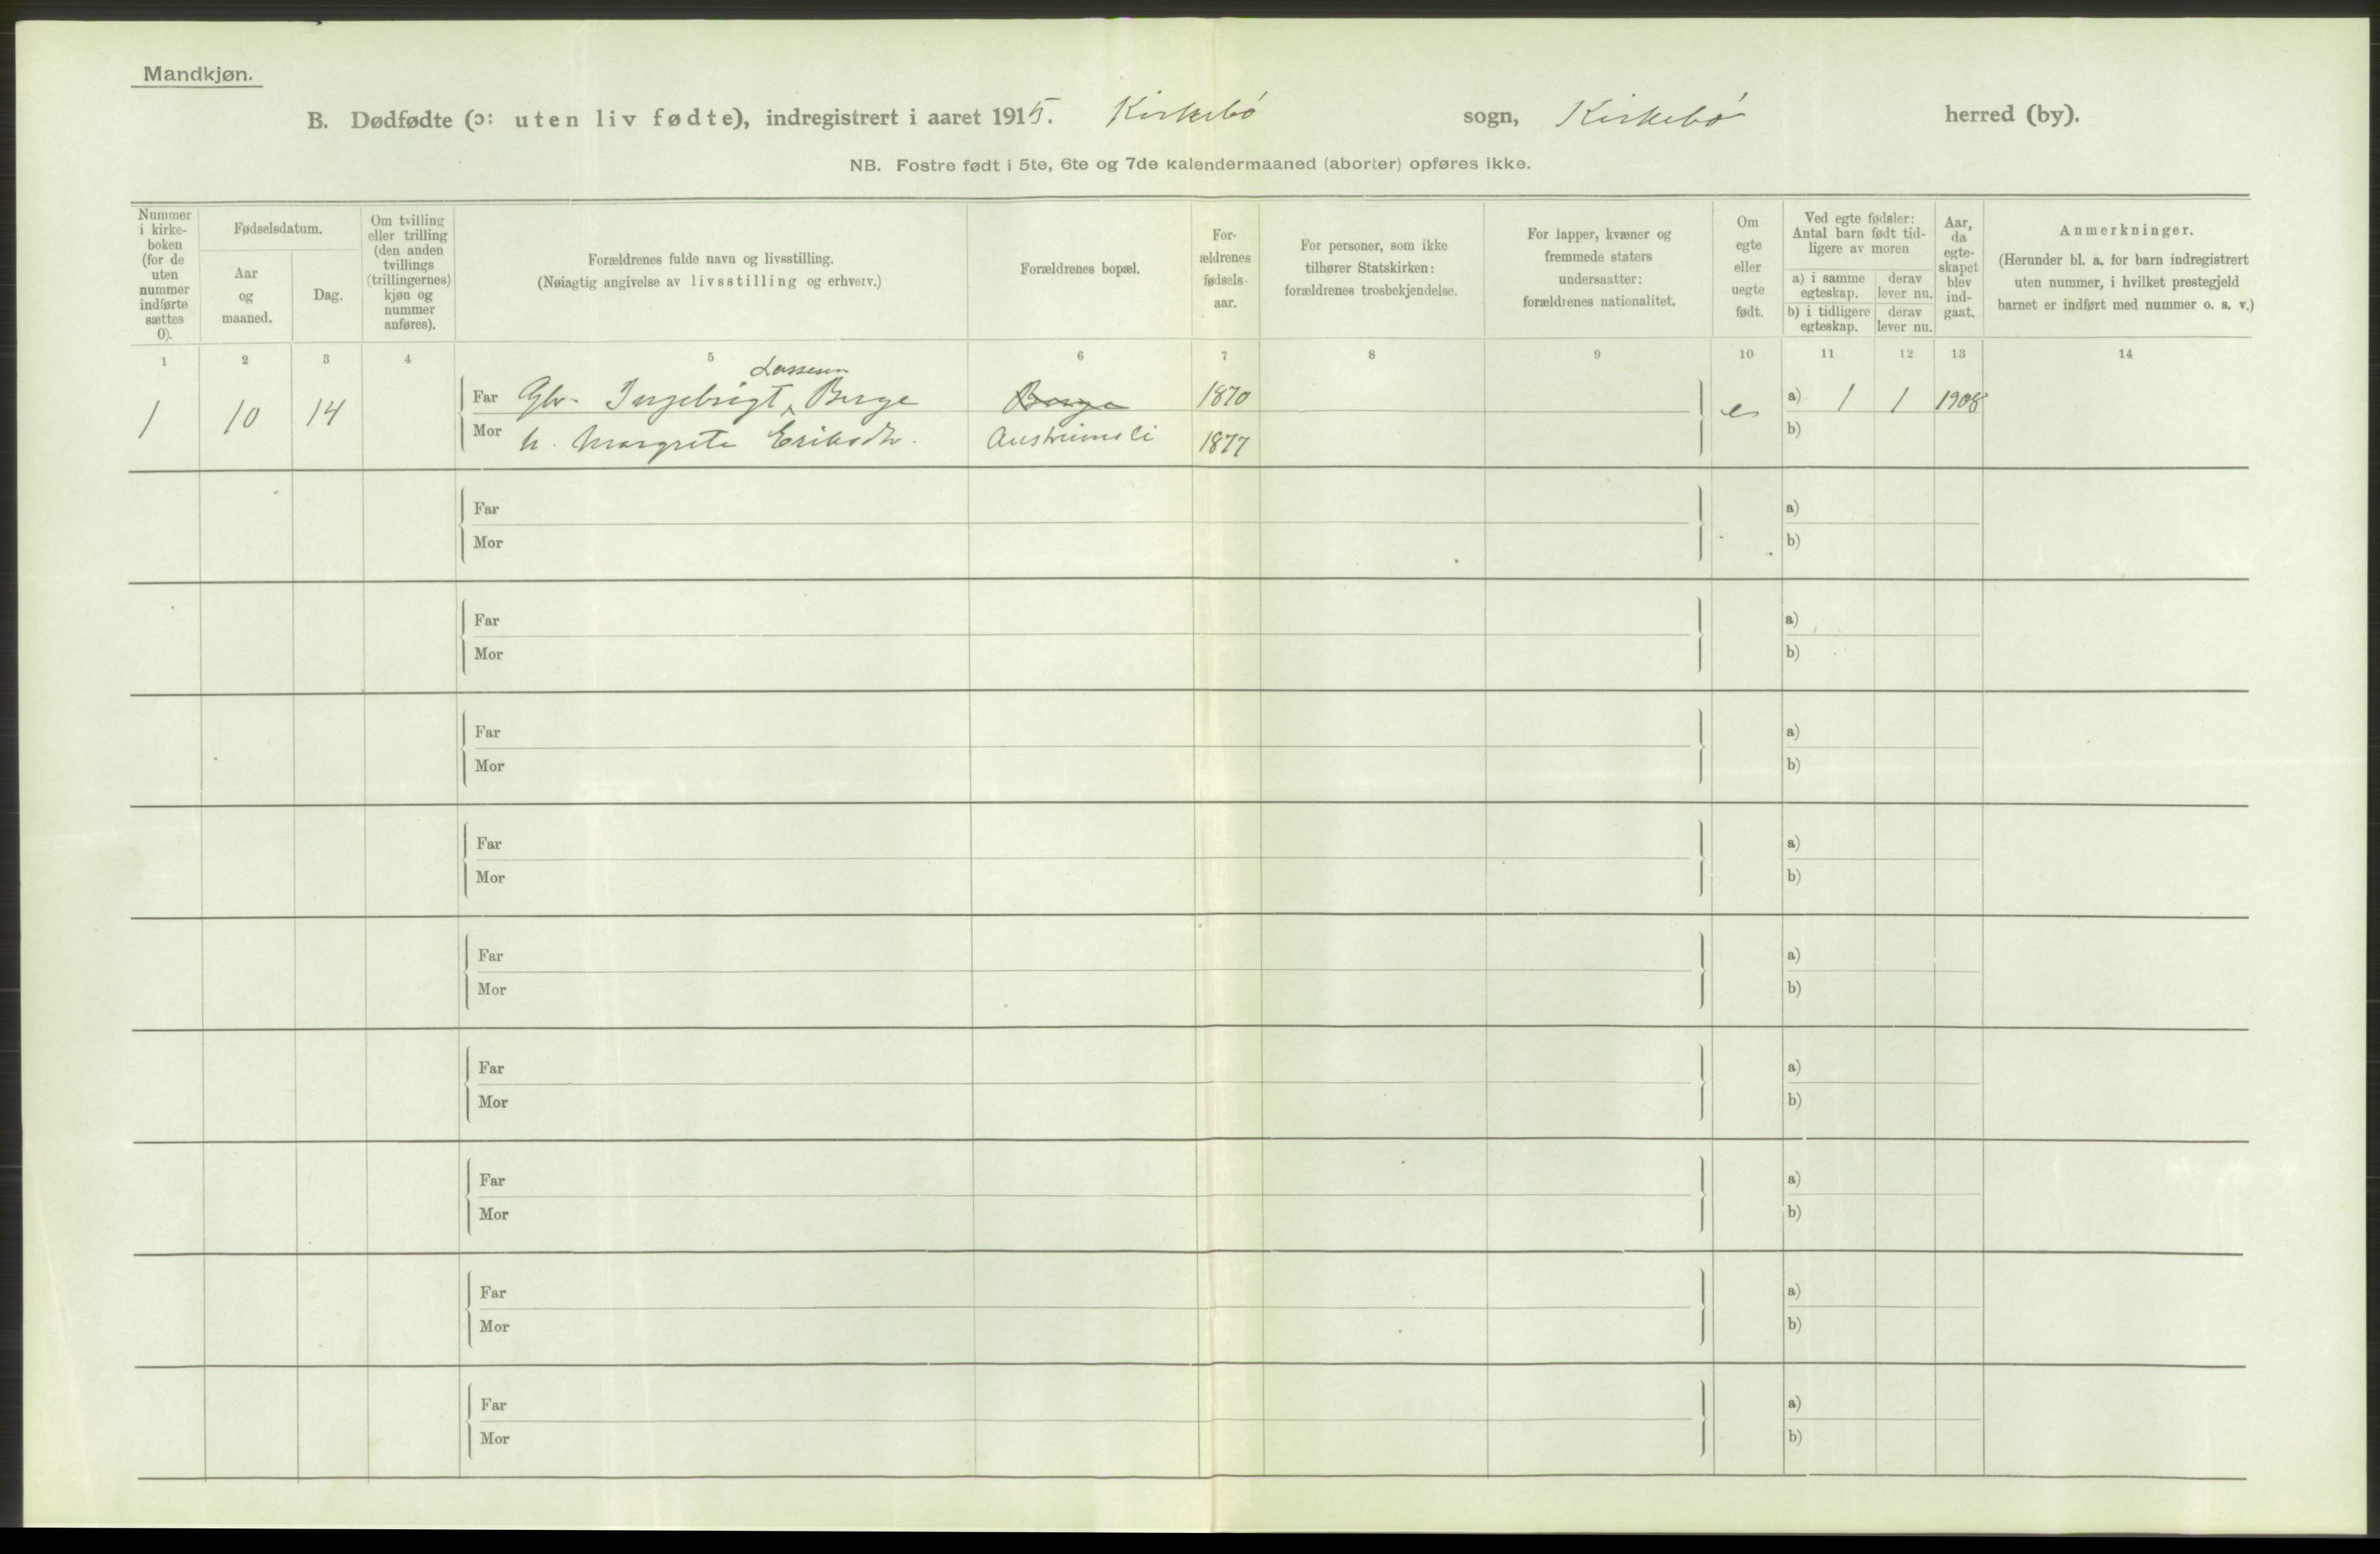 Mandkjøn.
B. Dødfødte (ɔ: uten liv fødte), indregistrert i aaret 1915. Kirkebó sogn, Kirkebó herred (by).
NB. Fostre født i 5te, 6te og 7de kalendermaaned (aborter) opføres ikke.
Nummer
i kirke-
boken
(for de
uten
nummer
indførte
sættes
0).
Fødselsdatum.
Aar
og
maaned.
Dag.
Om tvilling
eller trilling
(den anden
tvillings
(trillingernes)
kjøn og
nummer
anføres).
Forældrenes fulde navn og livsstilling.
(Nøiagtig angivelse av livsstilling og erhverv.)
Forældrenes bopæl.
For-
ældrenes
fødsels-
aar.
For personer, som ikke
tilhører Statskirken:
forældrenes trosbekjendelse.
For lapper, kvæner og
fremmede staters
undersaatter:
forældrenes nationalitet.
Om
egte
eller
uegte
født.
Ved egte fødsler:
Antal barn født tid-
ligere av moren
a) i samme
egteskap.
derav
lever nu.
b) i tidligere
egteskap.
derav
lever nu.
Aar,
da
egte-
skapet
blev
ind-
gaat.
Anmerkninger.
(Herunder bl. a. for barn indregistrert
uten nummer, i hvilket prestegjeld
barnet er indført med nummer o. s. v.)
1 2 3 4 5 6 7 8 9 10 11 12 13 14
Lassesen
1 10 14 Far Gbr. Ingebrigt Berge Berge 1870 e a) 1 1 1908
Mor h. Margrete Eriksdtr. Austreimsli 1877 b)
Far a)
Mor b)
Far a)
Mor b)
Far a)
Mor b)
Far a)
Mor b)
Far a)
Mor b)
Far a)
Mor b)
Far a)
Mor b)
Far a)
Mor b)
Far a)
Mor b)